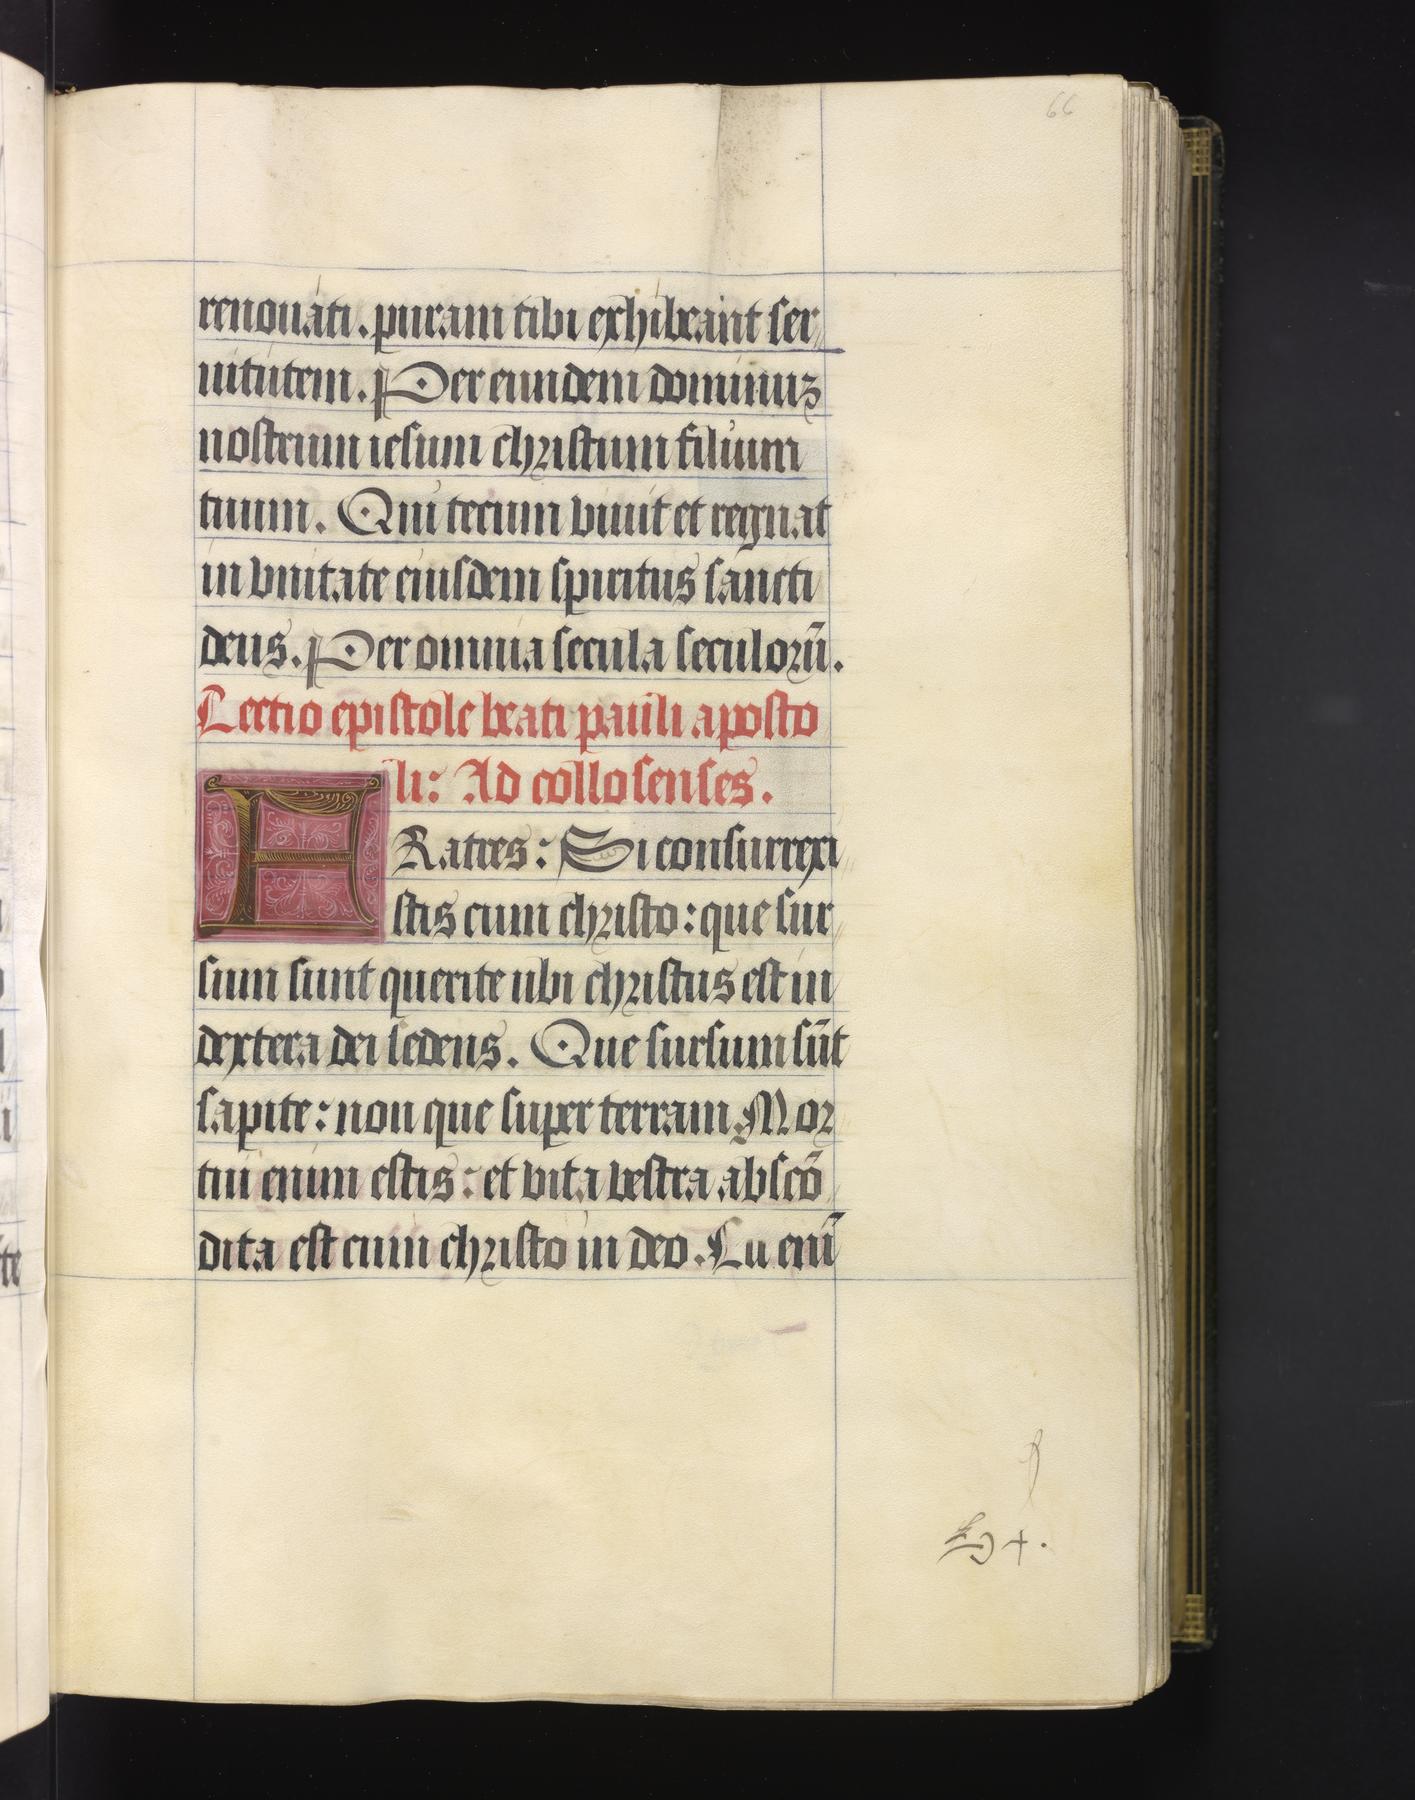 66
renouati. puram tibi exhibeant ser
uitutem. Per eundem dominuz
nostrum iesum christum filium
tuum. Qui tecum viuit et regnat
in vnitate eiusdem spiritus sancti
deus. Per omnia secula seculorū.
Lectio epistole beati pauli aposto
li: Ad collosenses.
FRatres: Si consurrexi
stis cum christo: que sur
sum sunt querite ubi christus est in
dextera dei sedens. Que sursum sūt
sapite: non que super terram. Mor
tui enim estis: et vita vestra abscō
dita est cum christo in deo. Cu enī